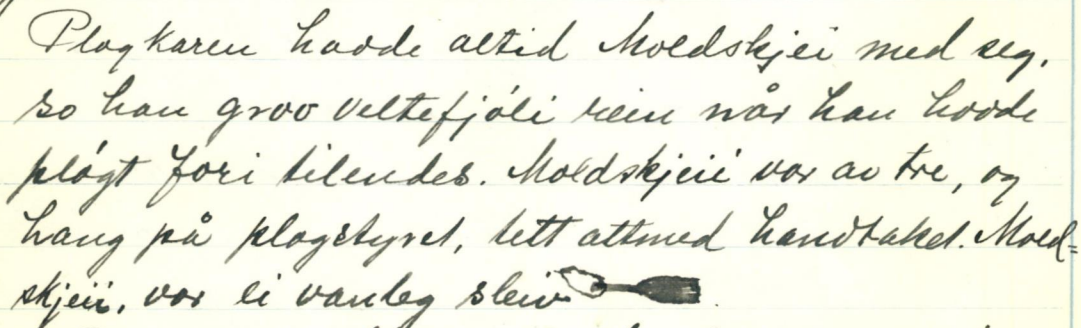 Plogkaren havde altid Moldskjei med seg,
so han grov veltefjóli rein når han havde
plógt fori tilendes. Moldskjeii var av tre, og
hang på plogstyret, tett attmed handtaket. Mold=
skjeii, var ei vanleg sleiv